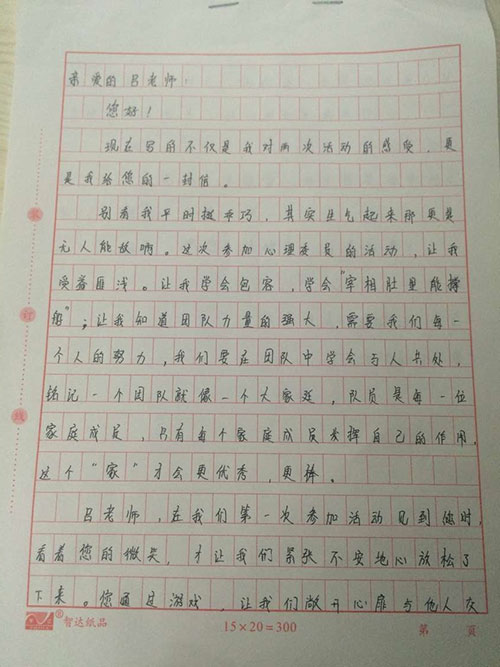 亲爱的吕老师:
您好!
现在写的不仅是我对两次活动的感受,更
是我给您的一封信。
别看我平时挺乖巧,其实生气起来那更是
无人能敌啊。这次参加心理委员的活动,让我
受益匪浅。让我学会包容,学会“宰相肚里能撑
船”;让我知道团队力量的强大,需要我们每一
个人的努力,我们要在团队中学会与人共处,
铭记一个团队就像一个大家庭,队员是每一位
家庭成员,只有每个家庭成员发挥自己的作用,
这个“家”才会更优秀,更棒。
吕老师,在我们第一次参加活动见到您时,
看着您的微笑,才让我们紧张不安地心放松了
下来。您通过游戏,让我们敞开心扉与他人交
装
订
线
智达纸品
15×20=300
第 页